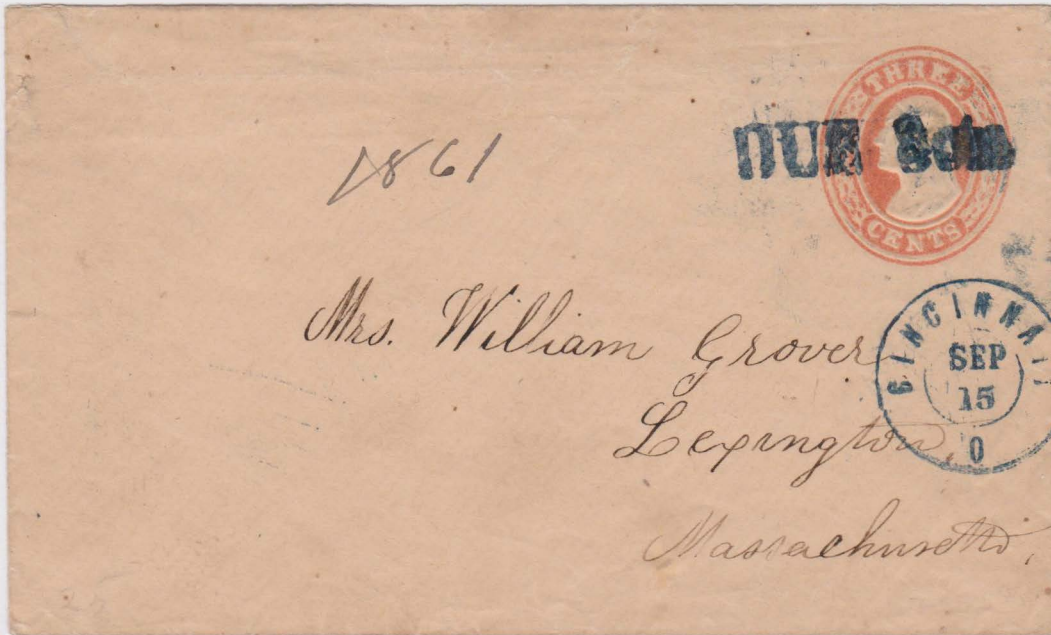 THREE
CENTS
DUE 3cts
1861
Mrs. William Grover
Lexington,
Massachusetts,
CINCINNATI
SEP
15
O